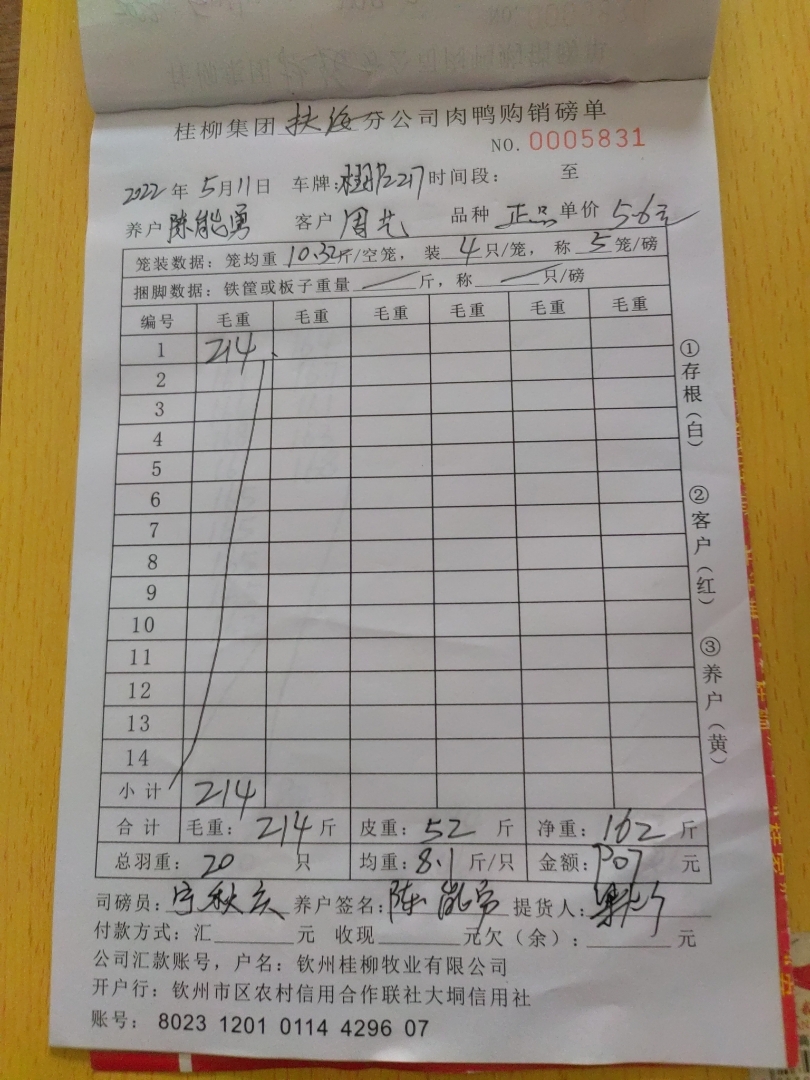 桂柳集团 扶绥 分公司肉鸭购销磅单
NO. 0005831
2022年 5月11日 车牌: 217 时间段: 至
养户 陈能勇 客户 周艺 品种 正品 单价 5.6元
笼装数据：笼均重 10.32斤/空笼，装 4 只/笼，称 5 笼/磅
捆脚数据：铁筐或板子重量 斤，称 只/磅
编号 毛重 毛重 毛重 毛重 毛重 毛重
1 214
2
3
4
5
6
7
8
9
10
11
12
13
14
小计 214
合计 毛重：214斤 皮重：52 斤 净重：162 斤
总羽重：20 只 均重：8.1 斤/只 金额：907 元
司磅员： 养户签名：陈能勇 提货人：
付款方式：汇 元 收现 元欠（余）： 元
公司汇款账号，户名：钦州桂柳牧业有限公司
开户行：钦州市区农村信用合作联社大垌信用社
账号：8023 1201 0114 4296 07
①存根（白）
②客户（红）
③养户（黄）